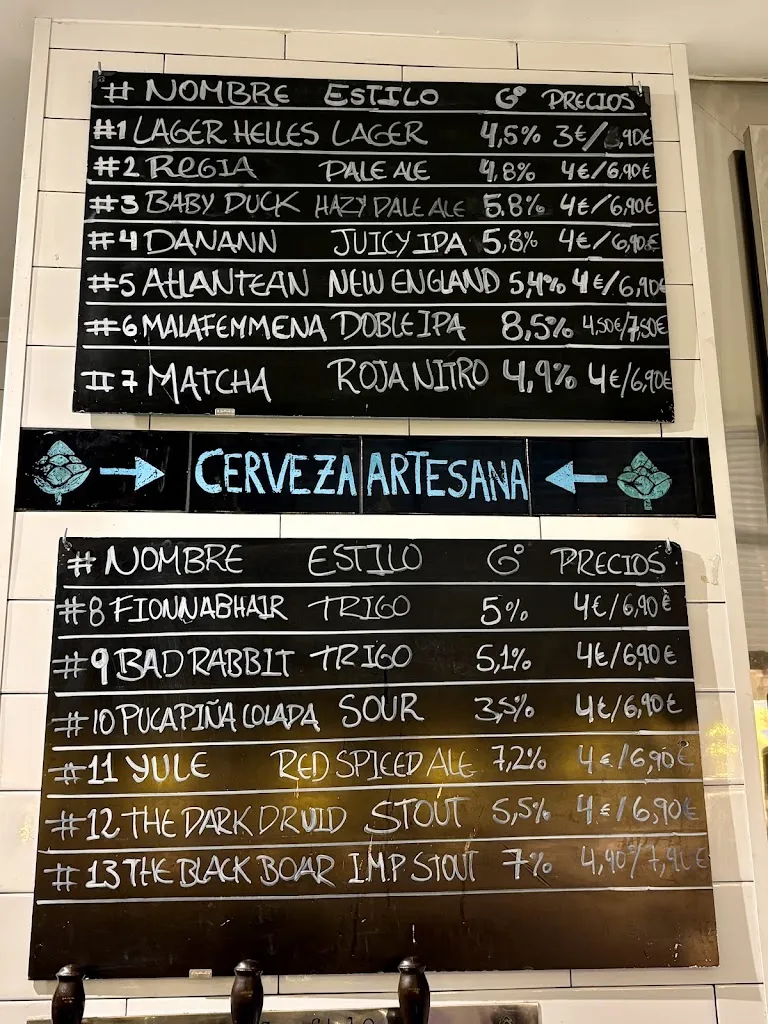 # NOMBRE ESTILO Gº PRECIOS
#1 LAGER HELLES LAGER 4,5% 3€/,90€
#2 REGIA PALE ALE 4,8% 4€/6,90€
#3 BABY DUCK HAZY PALE ALE 5.8% 4€/6,90€
#4 DANANN JUICY IPA 5,8% 4€/6,90€
#5 ATLANTEAN NEW ENGLAND 5,4% 4€/6,90€
#6 MALAFEMMENA DOBLE IPA 8,5% 4,50€/7,50€
#7 MATCHA ROJA NITRO 4,9% 4€/6,90€
CERVEZA ARTESANA
# NOMBRE ESTILO Gº PRECIOS
#8 FIONNABHAIR TRIGO 5% 4€/6,90€
#9 BAD RABBIT TRIGO 5,1% 4€/6,90€
#10 PUCA PIÑA COLADA SOUR 3,5% 4€/6,90€
#11 YULE RED SPICED ALE 7,2% 4€/6,90€
#12 THE DARK DRUID STOUT 5,5% 4€/6,90€
#13 THE BLACK BOAR I.M.P STOUT 7% 4,90€/7,90€